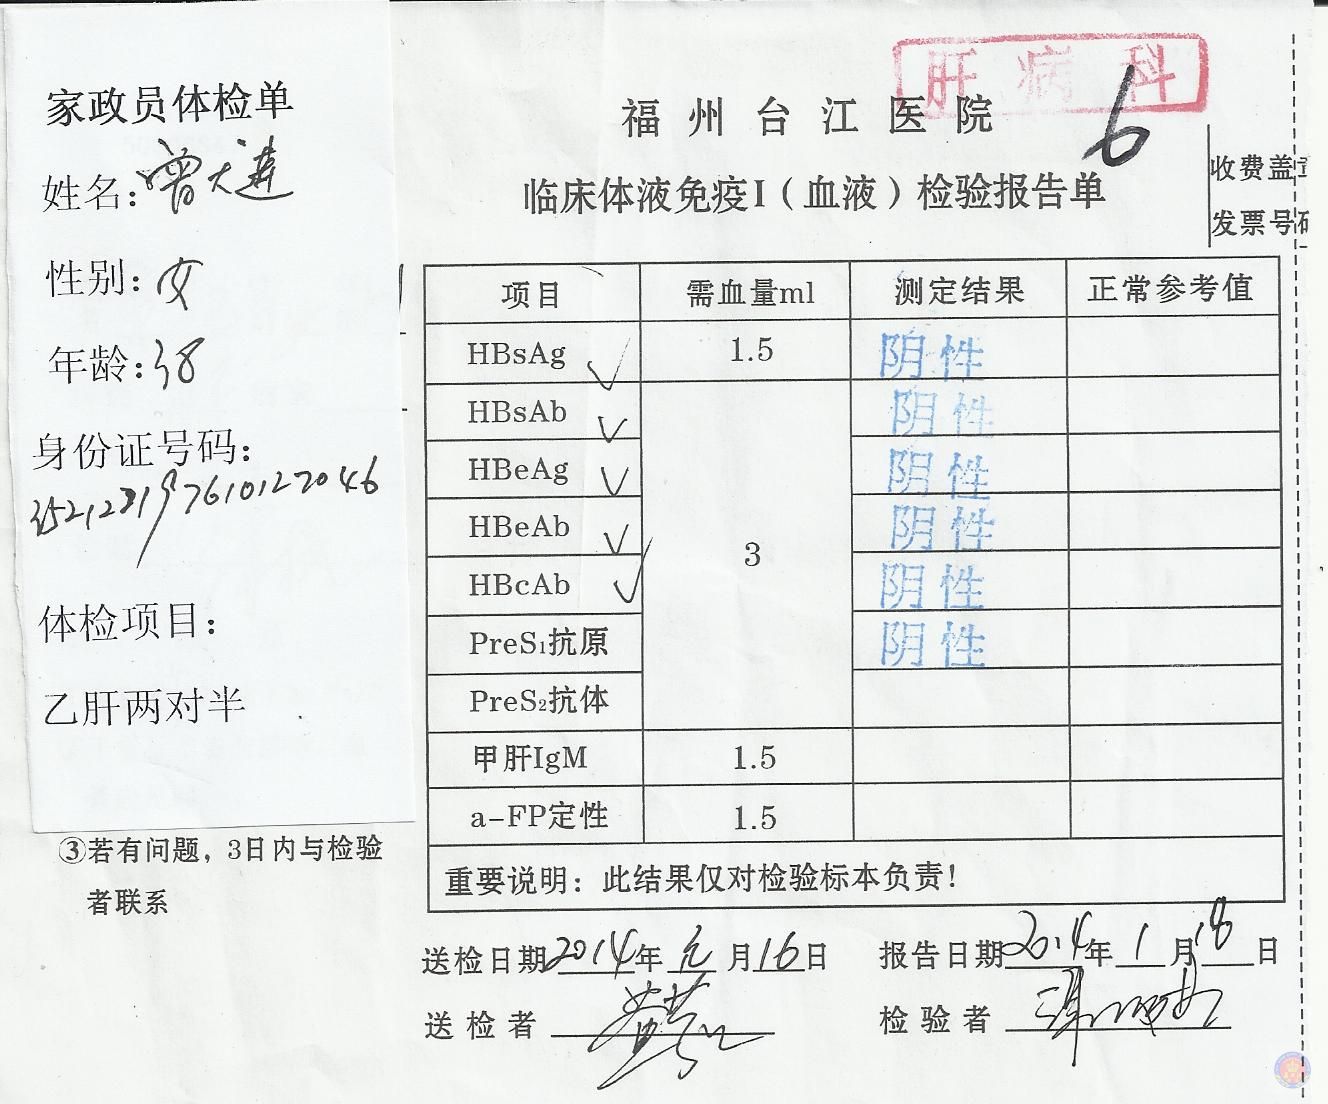 家政员体检单
姓名:曾大莲
性别:女
年龄:38
身份证号码:
352122197610127046
体检项目:
乙肝两对半
③若有问题，3日内与检验
者联系
肝病科
福州台江医院
6
临床体液免疫I（血液）检验报告单
收费盖
发票号码
项目 需血量ml 测定结果 正常参考值
HBsAg 1.5 阴性
HBsAb 阴性
HBeAg 阴性
HBeAb 3 阴性
HBcAb 阴性
PreS1抗原 阴性
PreS2抗体
甲肝IgM 1.5
a-FP定性 1.5
重要说明：此结果仅对检验标本负责!
送检日期2014年元月16日 报告日期2014年1月18日
送检者 检验者